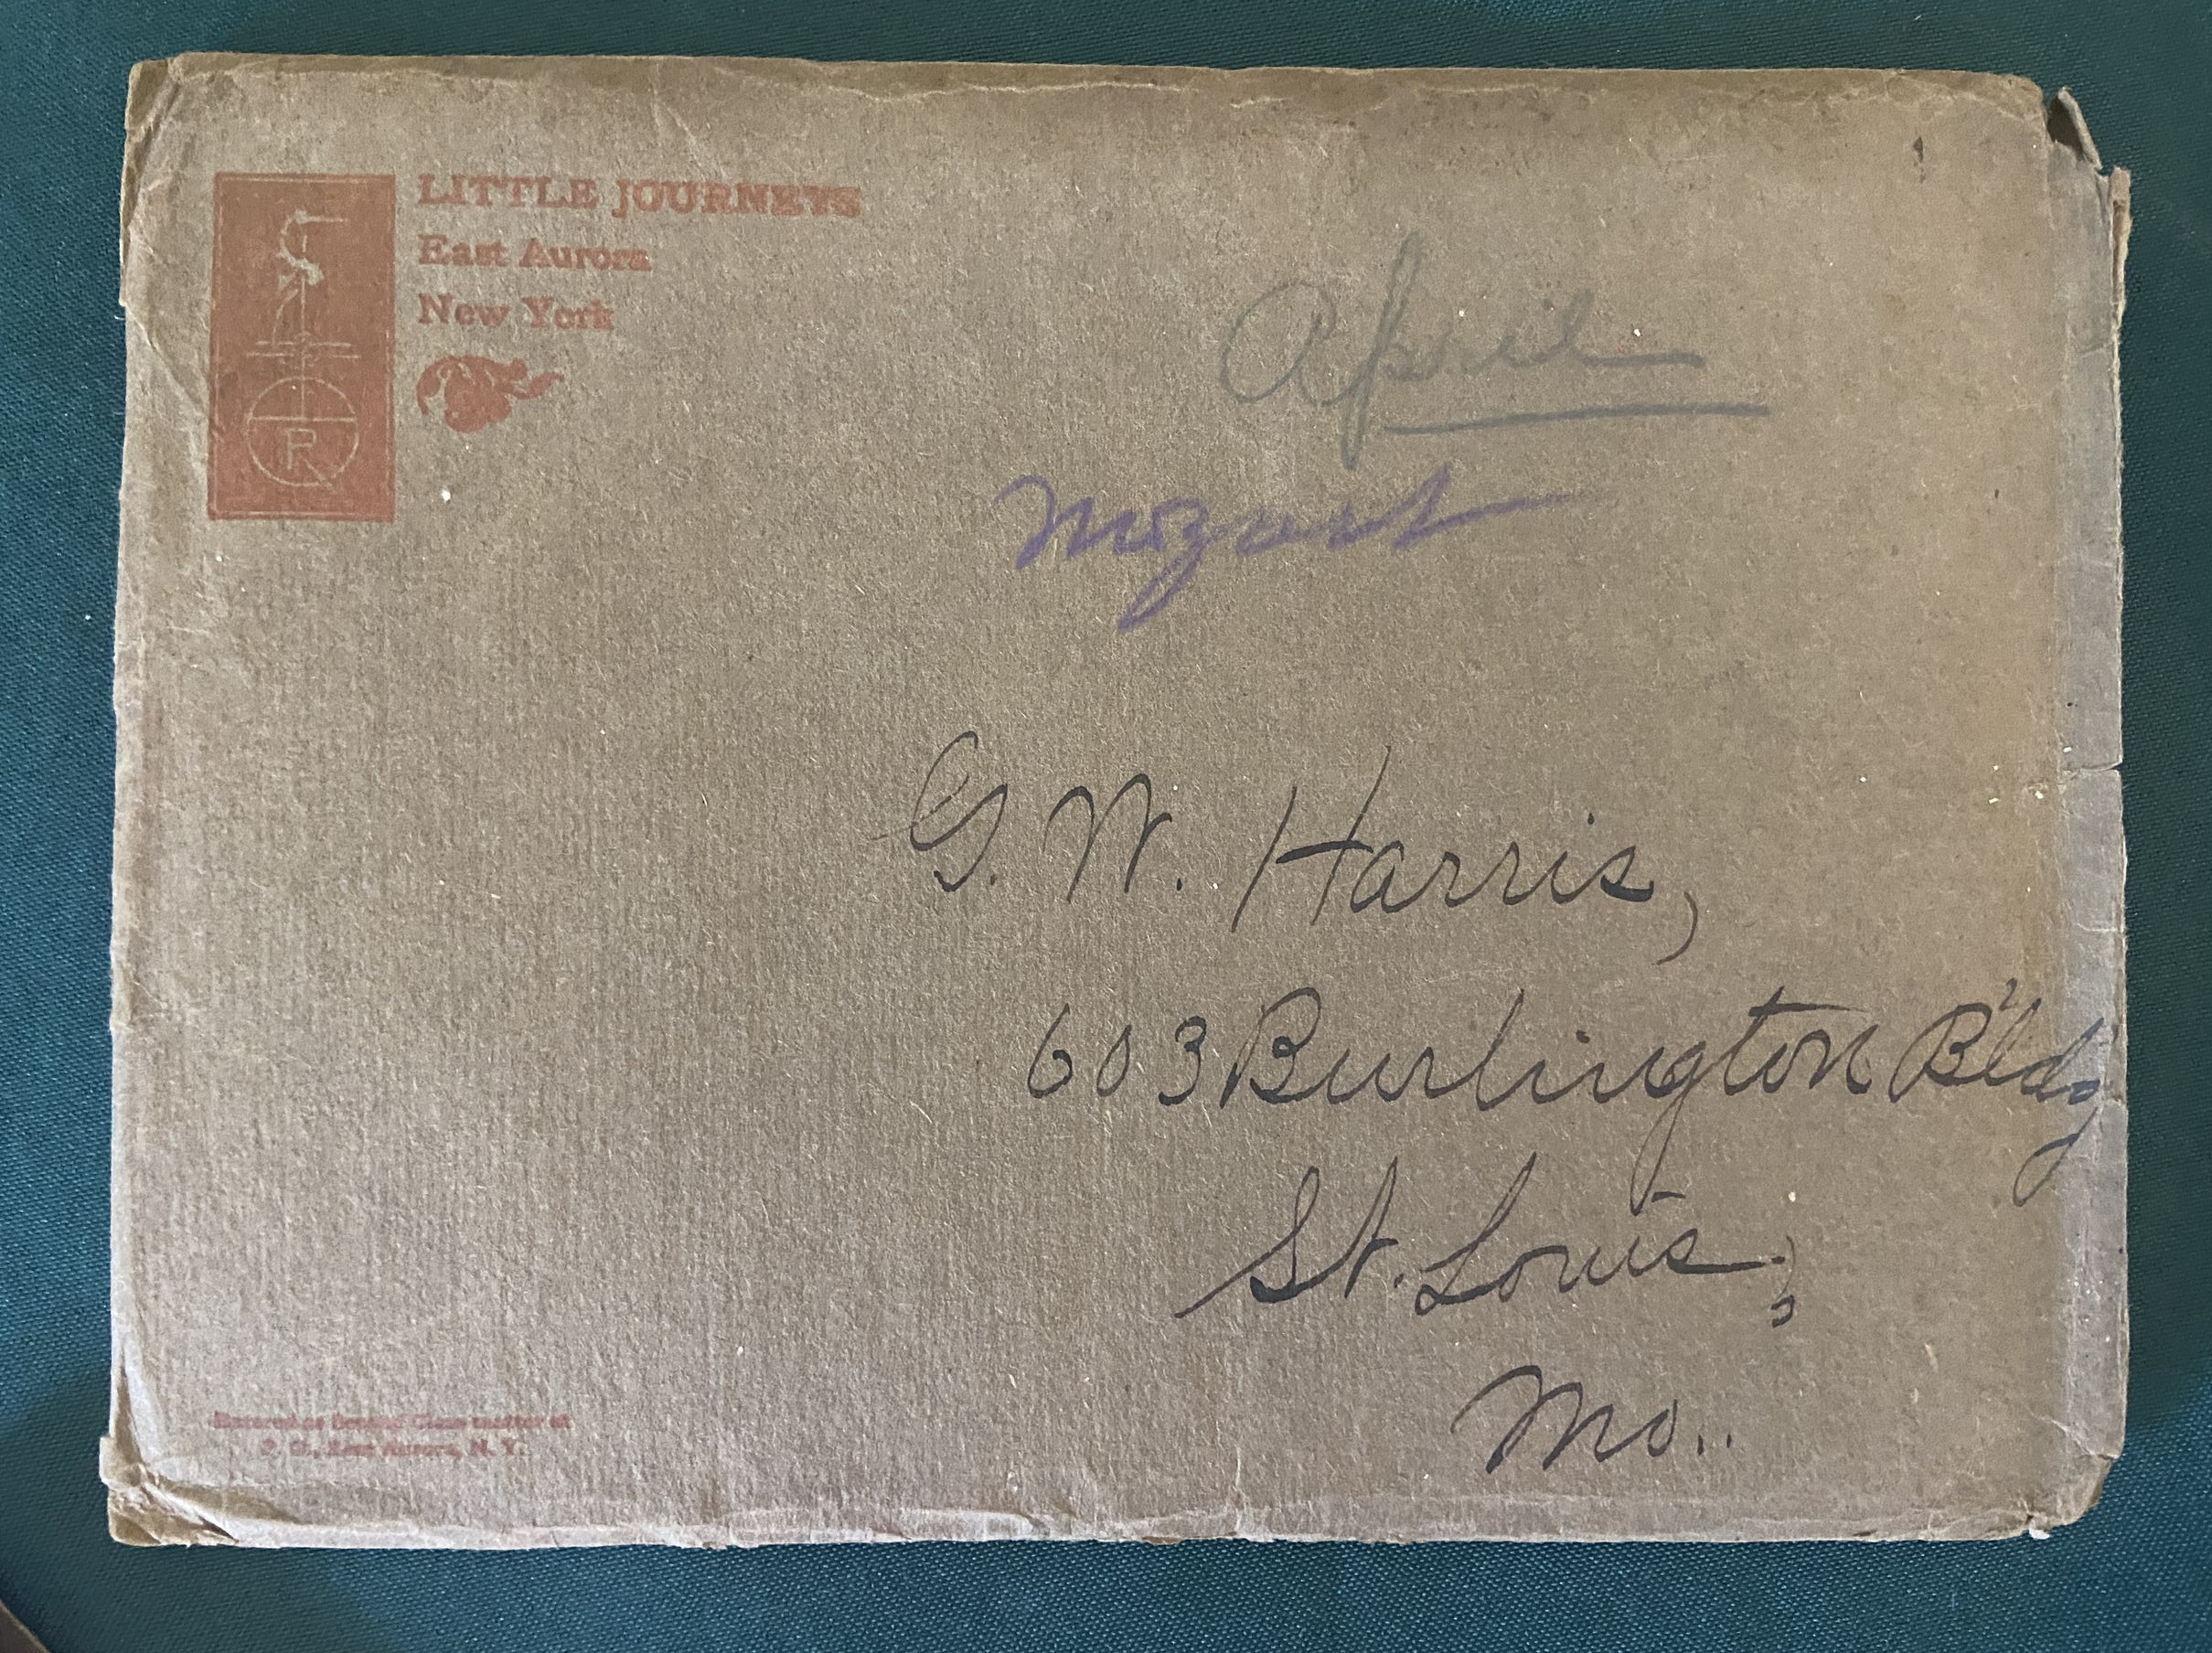 LITTLE JOURNEYS
East Aurora
New York
R
April
Mozart
G. W. Harris,
603 Burlington B'ldg
St. Louis,
Mo..
Entered as Second Class matter at
P. O., East Aurora, N. Y.